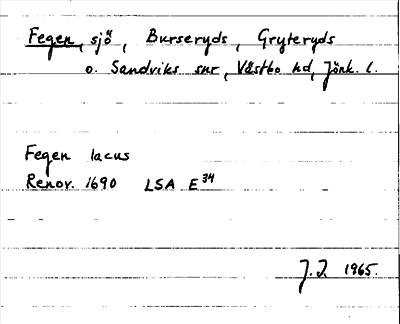 Fegen, sjö, Burseryds, Gryteryds
o. Sandviks snr, Västbo hd, Jönk. l.
Fegen lacus
Renov. 1690 LSA E34
J.I. 1965.